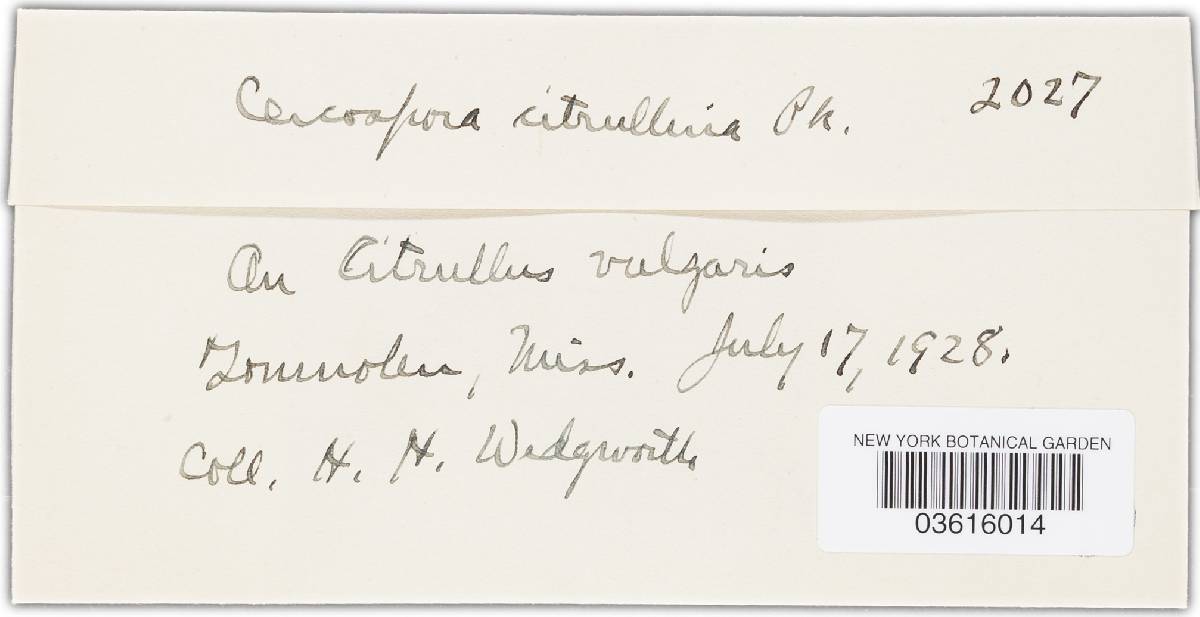 Cercospora citrullina Pk. 2027
On Citrullus vulgaris
Tomnolen, Miss. July 17, 1928.
Coll. H. H. Wedgworth
NEW YORK BOTANICAL GARDEN
03616014